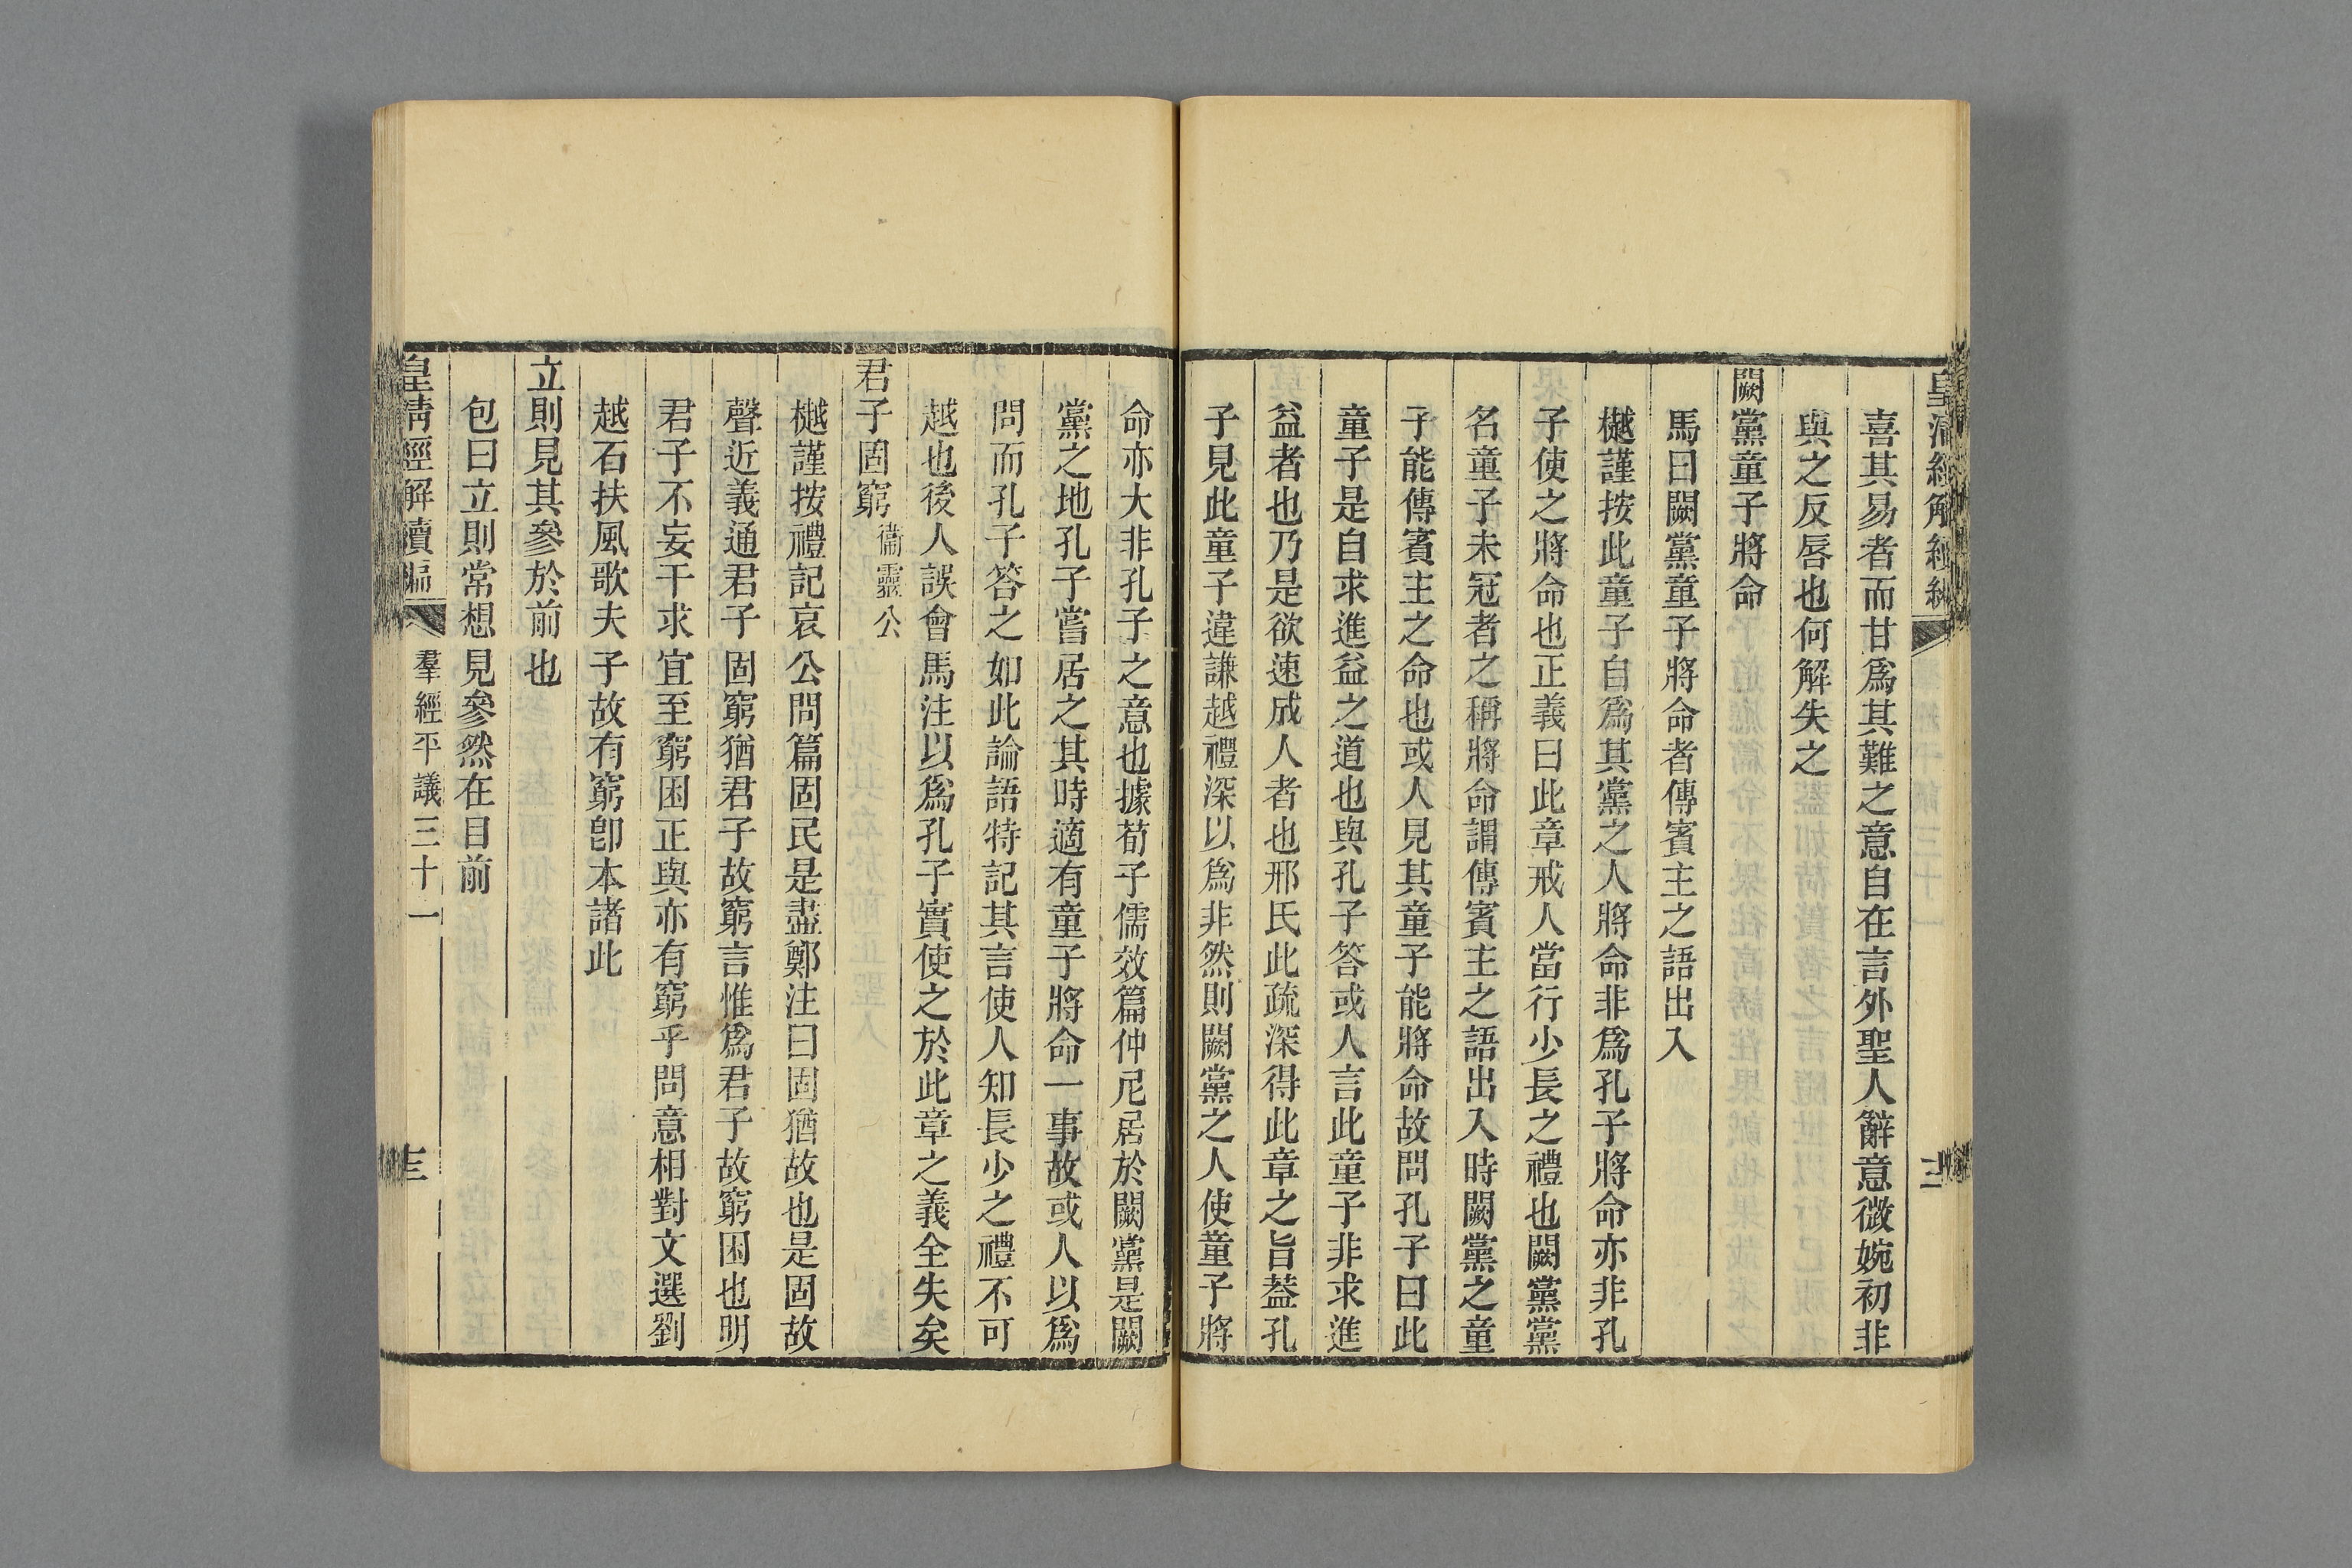 喜其易者而甘爲其難之意自在言外聖人辭意微婉初非
與之反唇也何解失之
闕黨童子將命
馬曰闕黨童子將命者傳賓主之語出入
樾謹按此童子自爲其黨之人將命非爲孔子將命亦非孔
子使之將命也正義曰此章戒人當行少長之禮也闕黨黨
名童子未冠者之稱將命謂傳賓主之語出入時闕黨之童
子能傳賓主之命也或人見其童子能將命故問孔子曰此
童子是自求進益之道也與孔子答或人言此童子非求進
益者也乃是欲速成人者也邢氏此疏深得此章之旨葢孔
子見此童子違謙越禮深以爲非然則闕黨之人使童子將
命亦大非孔子之意也據荀子儒效篇仲尼居於闕黨是闕
黨之地孔子嘗居之其時適有童子將命一事故或人以爲
問而孔子答之如此論語特記其言使人知長少之禮不可
越也後人誤會馬注以爲孔子實使之於此章之義全失矣
君子固窮衞靈公
樾謹按禮記哀公問篇固民是盡鄭注曰固猶故也是固故
聲近義通君子固窮猶君子故窮言惟爲君子故窮困也明
君子不妄干求宜至窮困正與亦有窮乎問意相對文選劉
越石扶風歌夫子故有窮卽本諸此
立則見其參於前也
包曰立則常想見參然在目前
皇清經解續編 羣經平議三十一